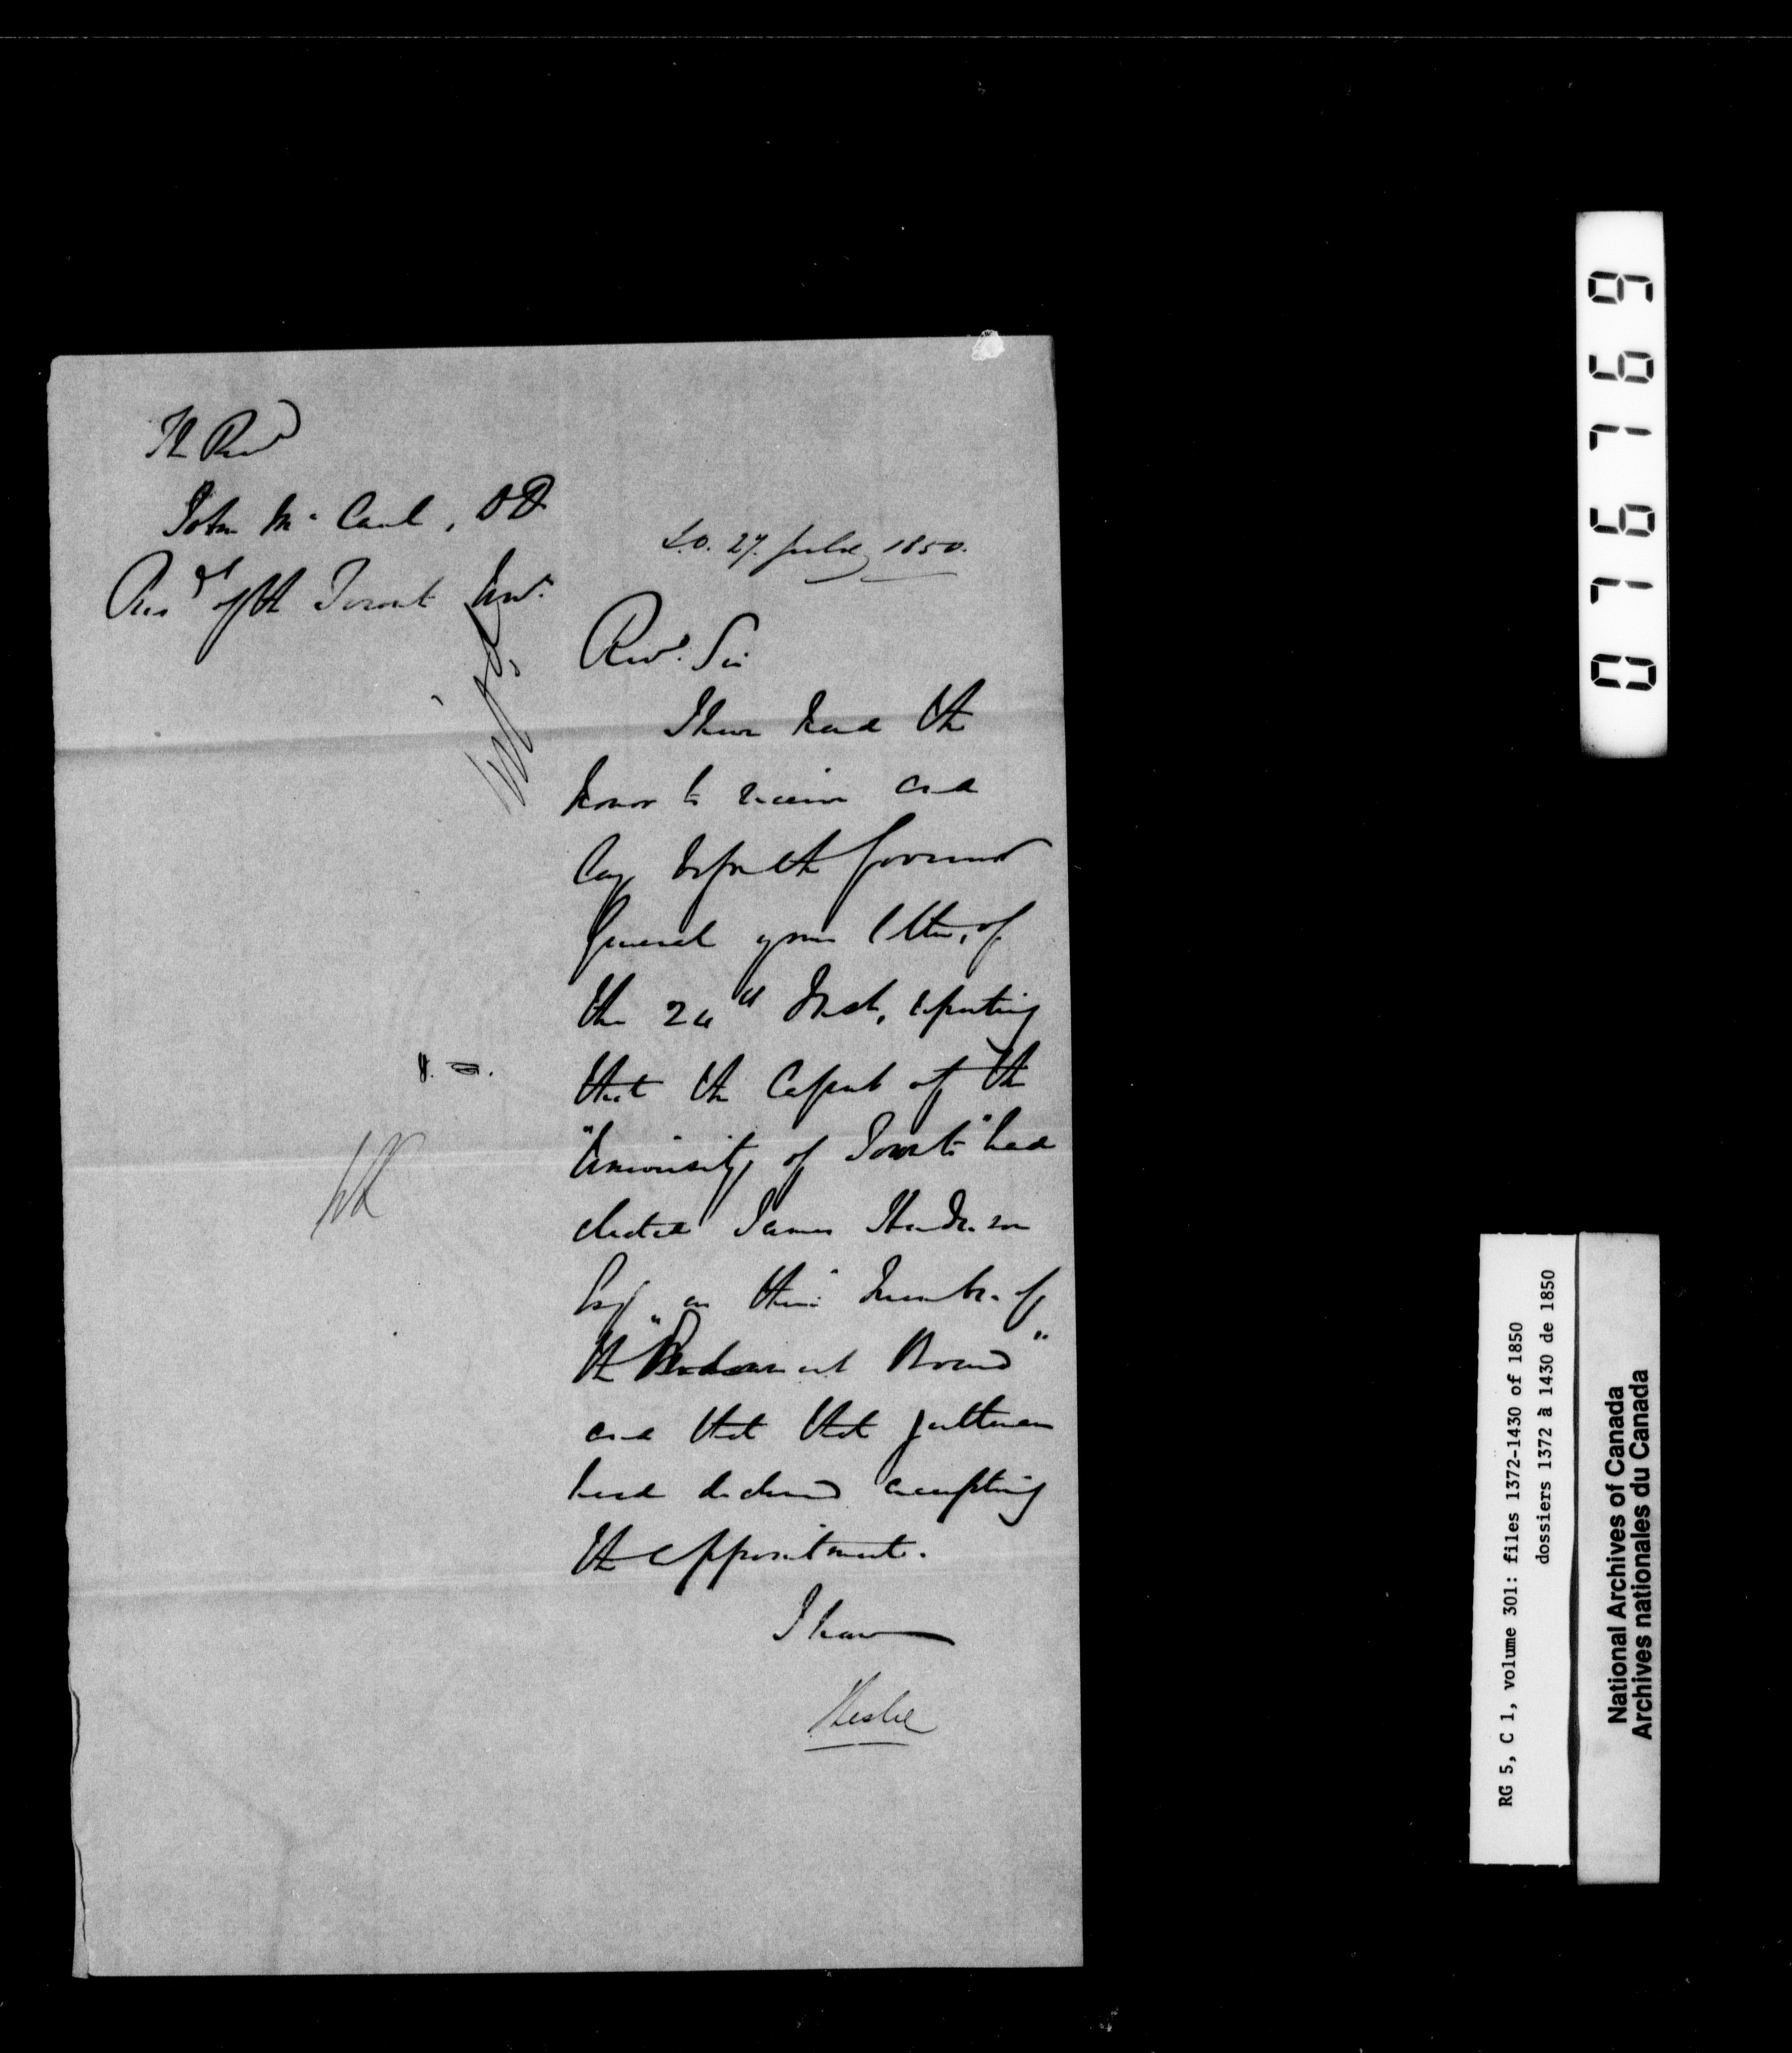 The Revd
John McCaul, DD
Presdt of the Toront Univ.
S.O. 27. July 1850.
Revd. Sir
I have had the
honor to receive and
lay before the Governor
General your letter, of
the 24th Inst, reporting
that the Caput of the
"University of Toronto" had
elected James Henderson
Esq as their Member of
the "Endowment Board"
and that that gentleman
had declined accepting
the appointment.
I have
JLeslie
076769
RG 5, C 1, volume 301: files 1372-1430 of 1850
dossiers 1372 à 1430 de 1850
National Archives of Canada
Archives nationales du Canada